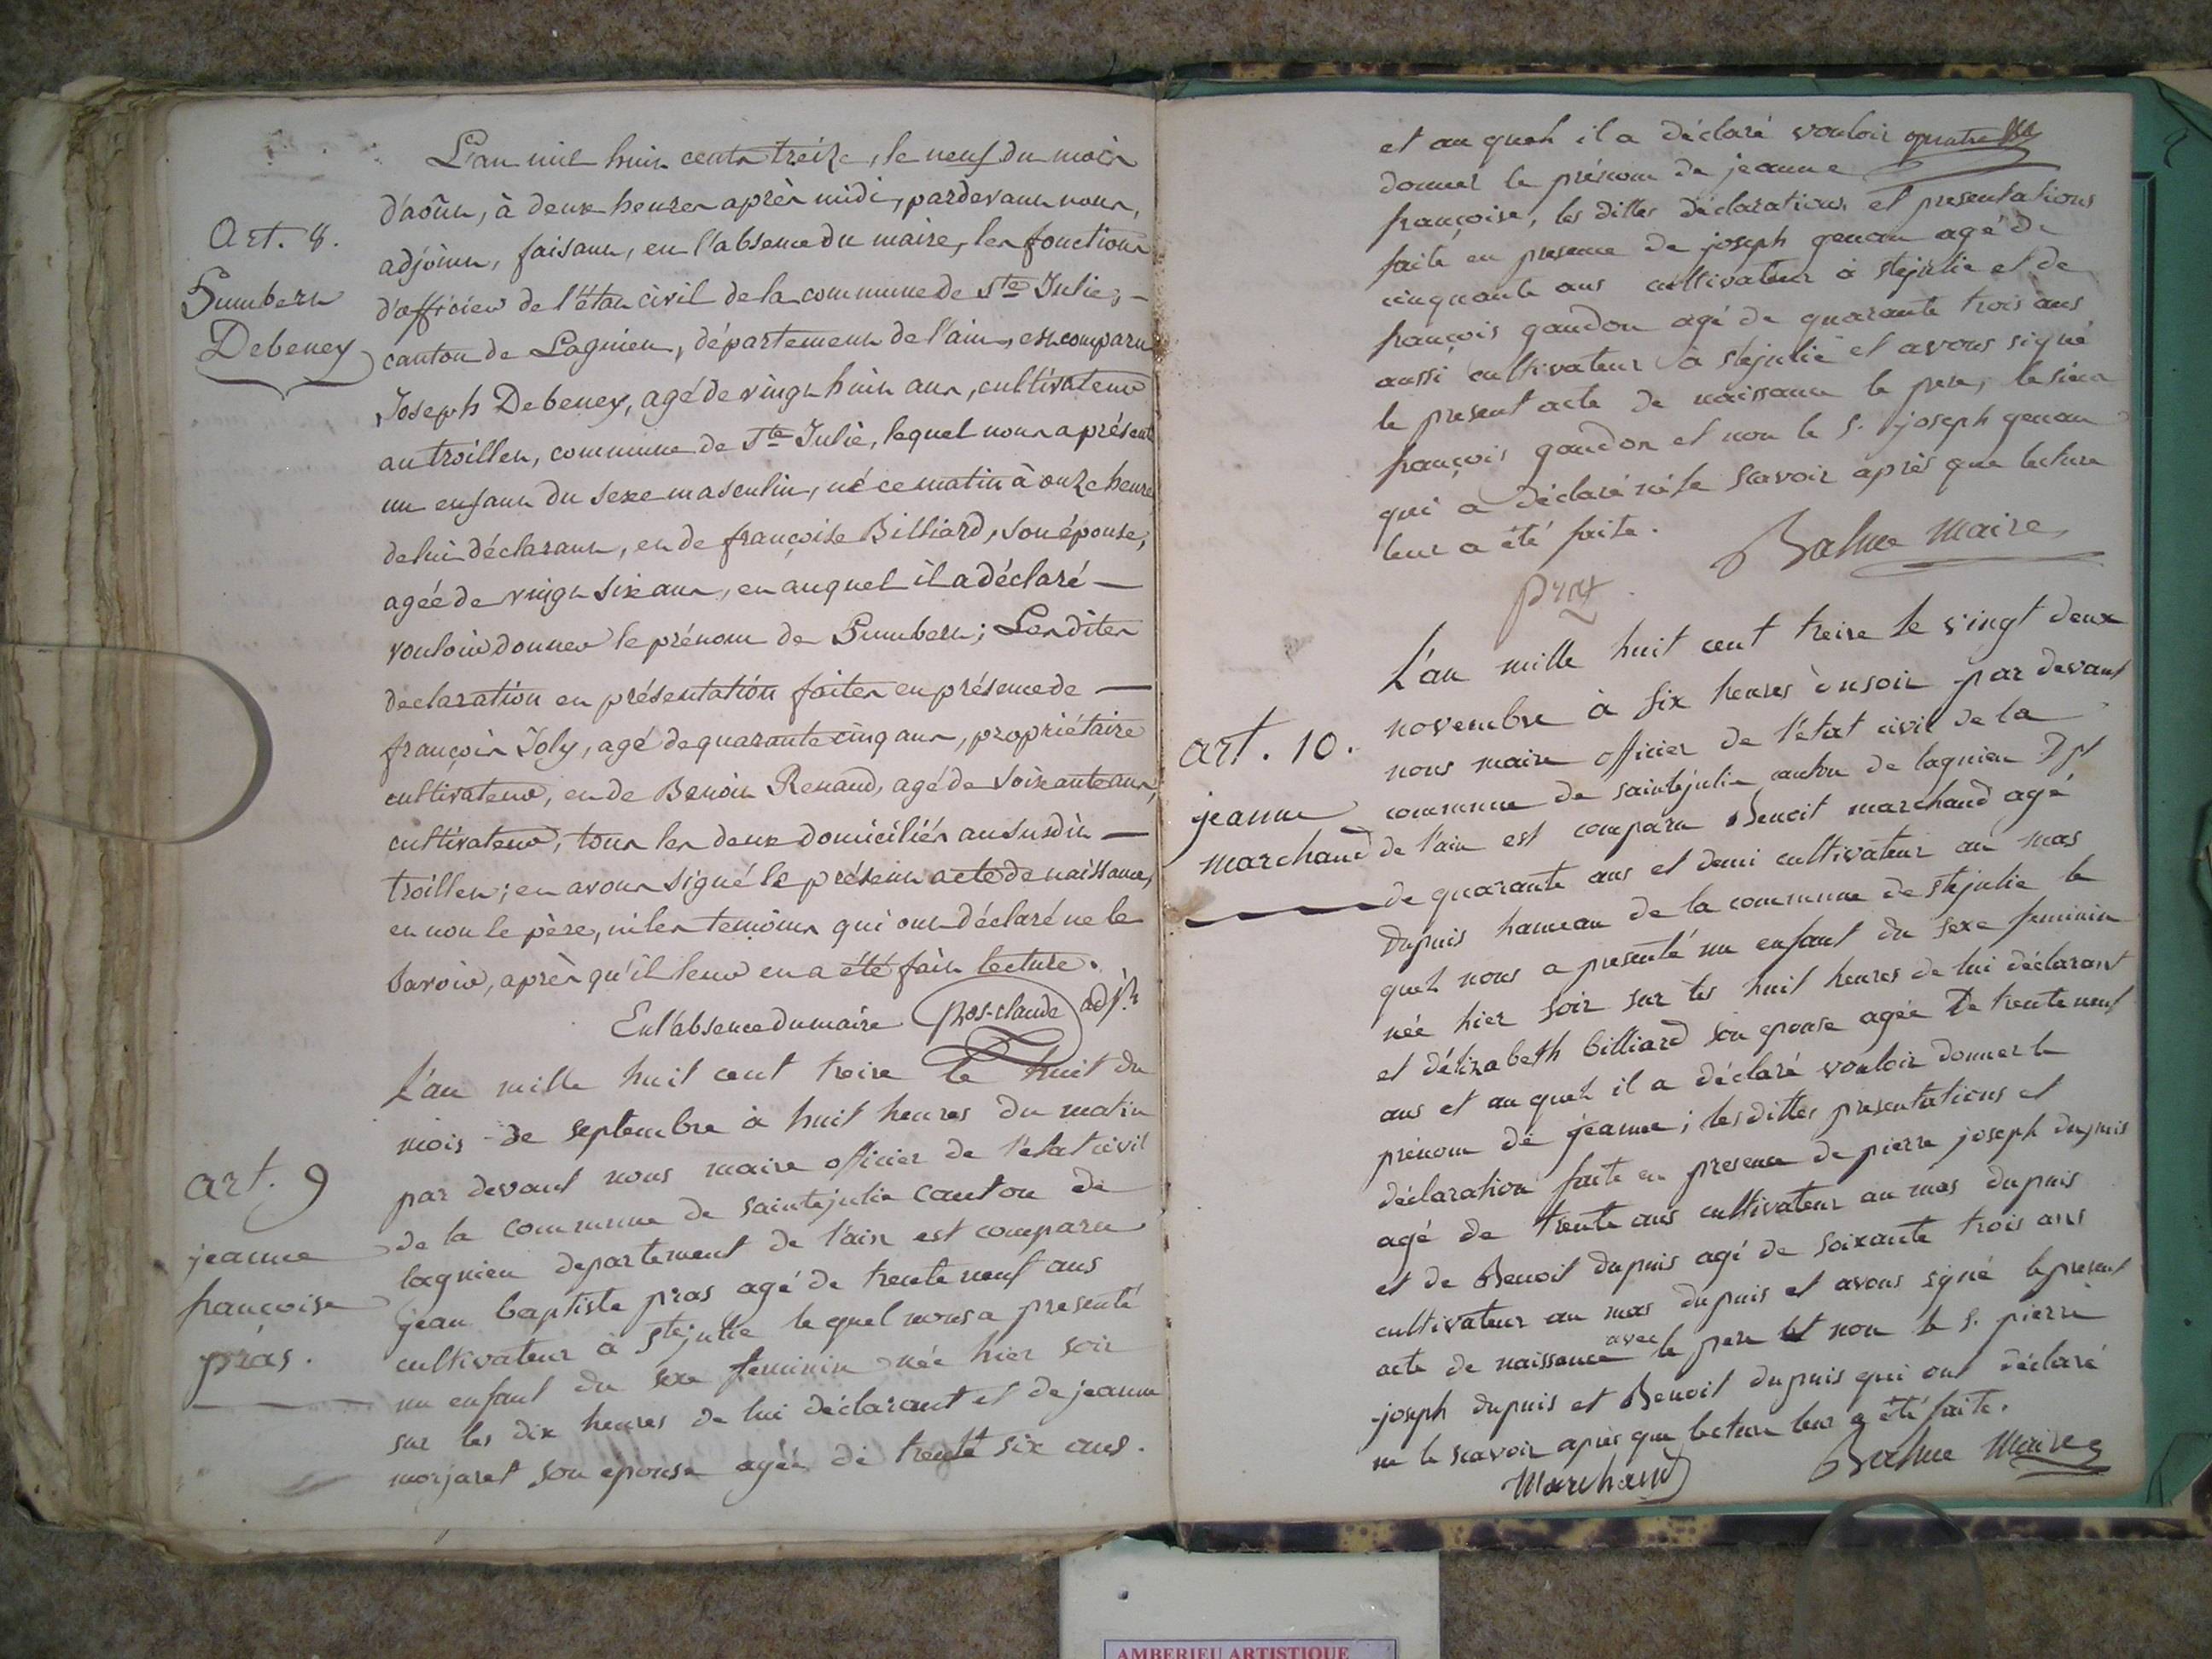 Art. 8.
Humbert
Debeney
L'an mil huit cents treize, le neuf du mois
d'août, à deux heures après midi, pardevant nous,
adjoint, faisant, en l'absence du maire, les fonctions
d'officier de l'état civil de la commune de Ste Julie, –
canton de Lagnieu, département de l'ain, est comparu
Joseph Debeney, agé de vingt huit ans, cultivateur
au troillet, commune de Ste Julie, lequel nous a présenté
un enfant du sexe masculin, né ce matin à onze heures
de lui déclarant, et de françoise Billiard, son épouse,
agée de vingt six ans, et auquel il a déclaré –
vouloir donner le prénom de Humbert; Les dites
declaration et présentation faites en présence de –
françois Joly, agé de quarante cinq ans, propriétaire
cultivateur, et de Benoit Renaud, agé de soixante ans,
cultivateur, tous les deux domiciliés au susdit –
troillet; et avons signé le présent acte de naissance,
et non le père, ni les temoins qui ont déclaré ne le
savoir, après qu'il leur en a été fait lecture.
En l'absence du maire claude adjt
art. 9
jeanne
françoise
pras.
L'an mille huit cent treize le huit du
mois de septembre à huit heures du matin
par devant nous maire officier de l'etat civil
de la commune de saintejulie canton de
lagnieu departement de l'ain est comparu
jean baptiste pras agé de trente neuf ans
cultivateur à ste julie le quel nous a presenté
un enfant du sexe feminin née hier soir
sur les dix heures de lui déclarant et de jeanne
morjaret son epouse agée de trente six ans.
et au quel il a déclaré vouloir
donner le prénom de jeanne
françoise, les dittes déclarations et presentations
faite en presence de joseph genou agé de
cinquante ans cultivateur à ste julie et de
françois gaudon agé de quarante trois ans
aussi cultivateur à ste julie et avons signé
le present acte de naissance le pere, le sieur
françois gaudon et non le s. joseph genou
qui a déclaré ne le scavoir après que lecture
leur a été faite.
Balme maire
art. 10.
jeanne
marchand
L'an mille huit cent treize le vingt deux
novembre à six heures du soir par devant
nous maire officier de l'état civil de la
commune de saintejulie canton de lagnieu Dpt
de l'ain est comparu Benoit marchand agé
de quarante ans et demi cultivateur au mas
dupuis hameau de la commune de ste julie le
quel nous a presenté un enfant du sexe feminin
née hier soir sur les huit heures de lui déclarant
et d'élizabeth billiard son epouse agée de trente neuf
ans et au quel il a déclaré vouloir donner le
prénom de jeanne; les dittes presentations et
déclaration faite en presence de pierre joseph dupuis
agé de trente ans cultivateur au mas dupuis
et de Benoit dupuis agé de soixante trois ans
cultivateur au mas dupuis et avons signé le present
acte de naissance avec le pere et non le s. pierre
joseph dupuis et Benoit dupuis qui ont déclaré
ne le scavoir après que lecture leur a été faite.
Marchand Balme Maire
AMBERIEU ARTISTIQUE